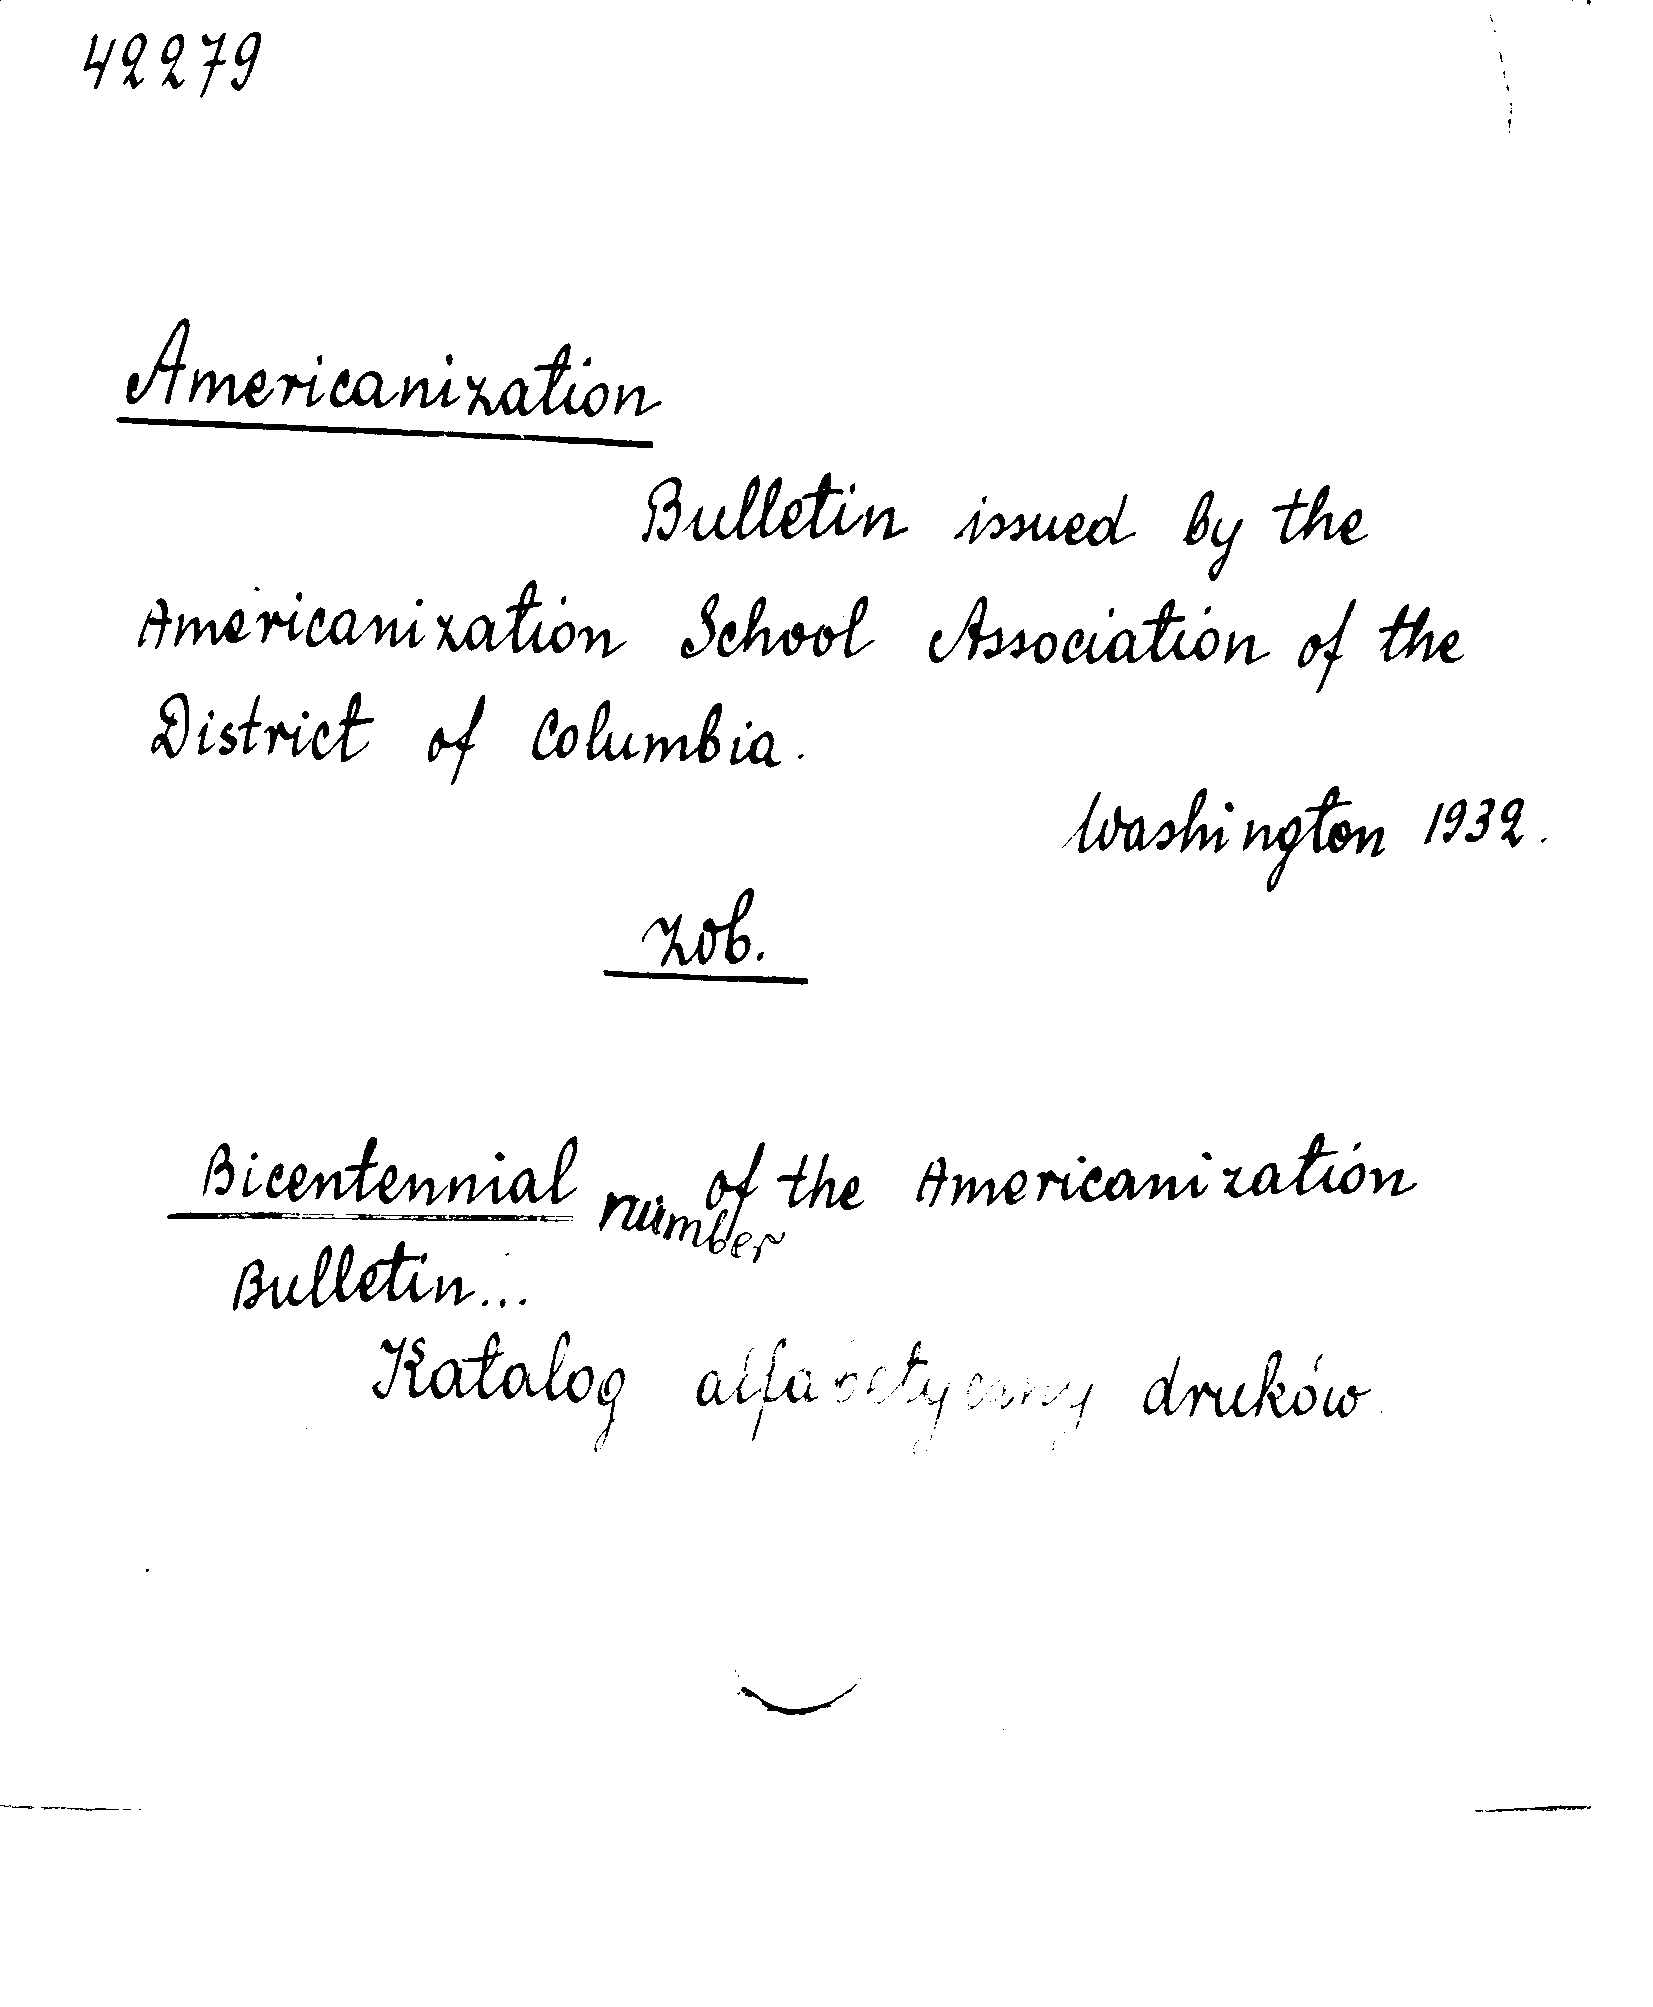 42279
Americanization
Bulletin issued by the
Americanization School Association of the
District of Columbia.
Washington 1932.
Zob.
Bicentennial number of the Americanization
Bulletin...
Katalog alfabetyczny druków.